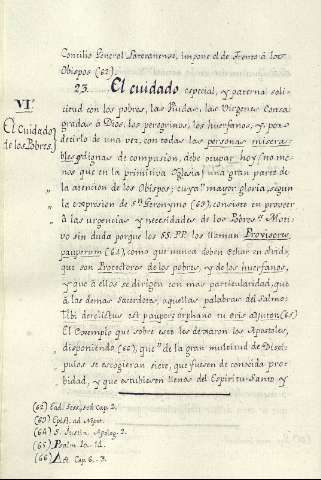 Concilio General Lateranense, impone el de Trento á los
Obispos (62).
23. El cuidado especial, y paterna soli-
VI.
El Cuidado
de los Pobres.
citud con los pobres, las Viudas, las Virgenes Consa-
gradas á Dios, los peregrinos, los huerfanos, y, por
decirlo de una vez, con todas las personas misera-
bles y dignas de compasion, debe ocupar hoy (no me-
nos que en la primitiva Iglesia) una gran parte de
la atencion de los Obispos; cuya mayor gloria, segun
la expresion de Sn. Geronymo (63), consiste en proveer
á las urgencias y necesidades de los Pobres. Moti-
vo sin duda porque los SS. PP. los llaman Provisores
pauperum (64), como que nunca deben echar en olvido,
que son Protectores de los pobres, y de los huerfanos,
y que á ellos se dirigen con mas particularidad, que
á los demas Sacerdotes, aquellas palabras del Salmo:
Tibi derelictus est pauper, orphano tu eris adjutor (65)
El Exemplo que sobre esto les dexaron los Apostoles,
disponiendo (66), que de la gran multitud de Disci-
pulos se escogieran siete, que fuesen de conocida pro-
bidad, y que estubieron llenos del Espiritu Santo y
(62) Ead. Sess. Cap. 2.
(63) Epist. ad Nepot.
(64) S. Justin. Apolog. 2.
(65) Psalm. 10. 14.
(66) A.A. Cap. 6. 3.